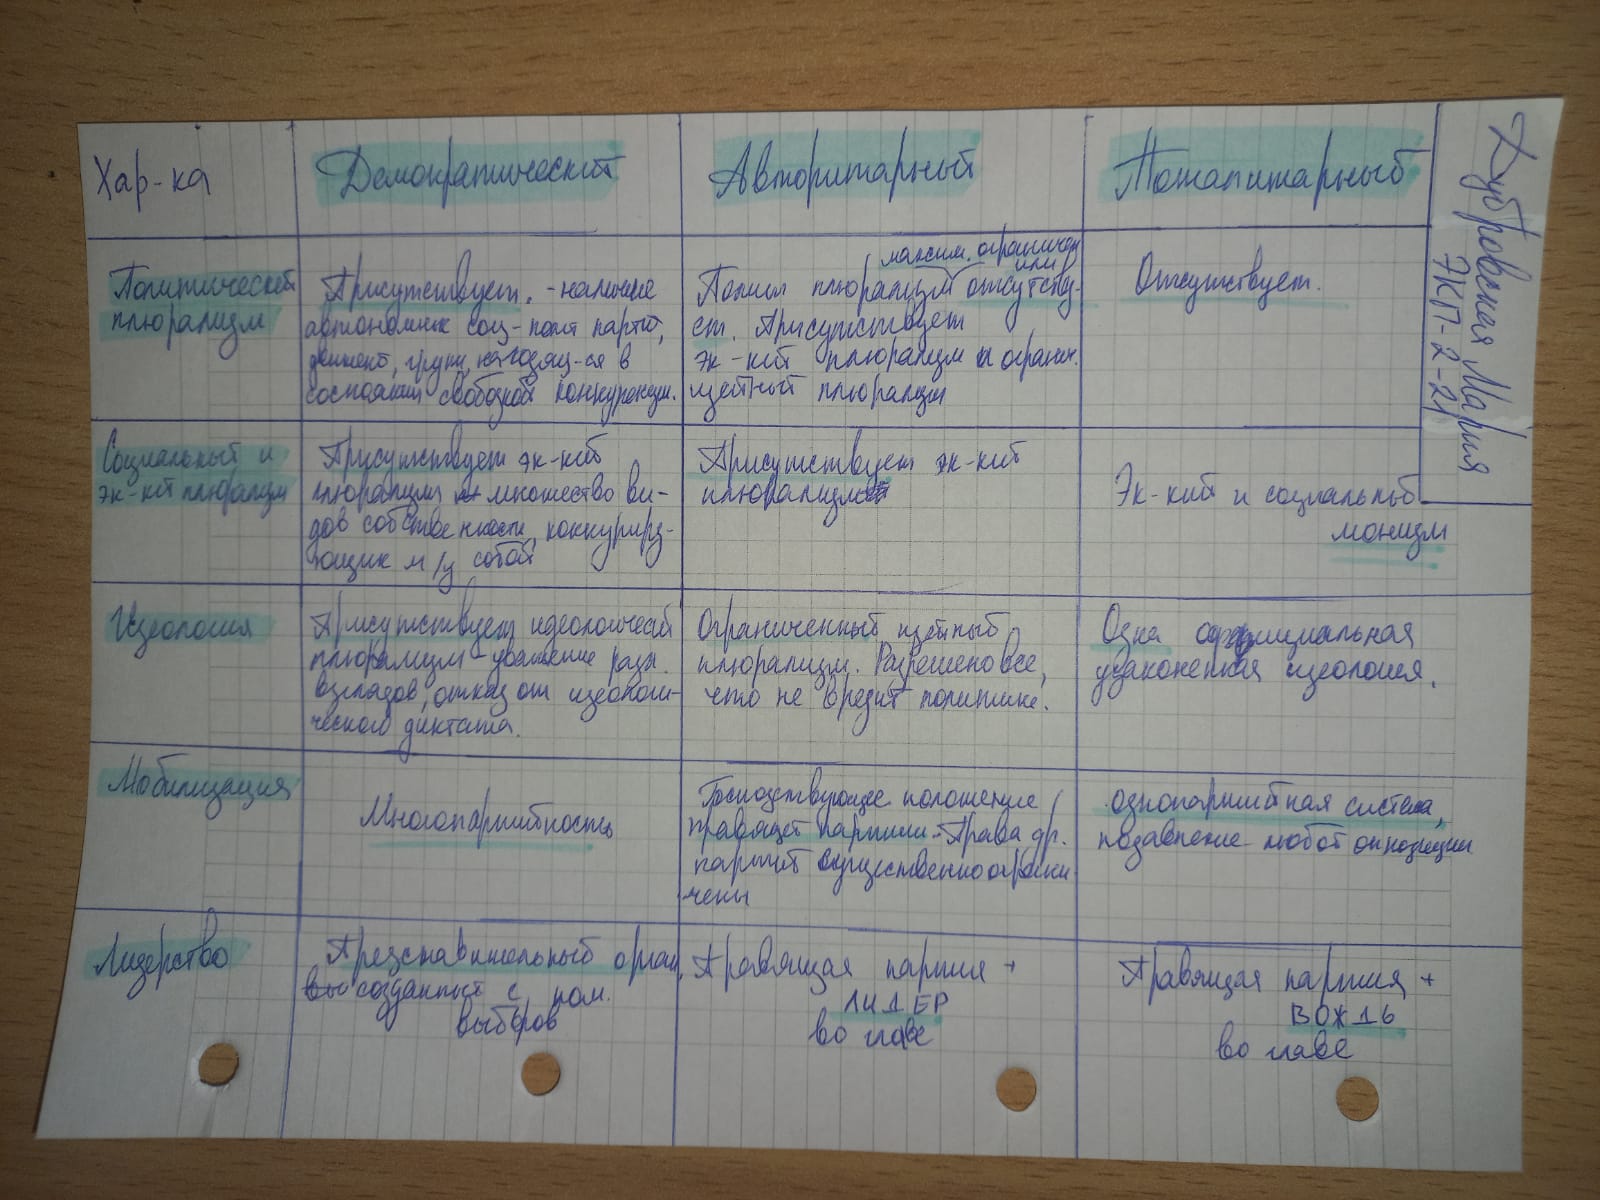 Хар-ка
Демократический
Авторитарный
Тоталитарный
Дубровская Мария
ЭКП-2-21
Политический
плюрализм
Присутствует. - наличие
автономных соц-полит партий,
движений, групп, находящ-ся в
состоянии свободной конкуренции.
максим. ограничен
или
Полит плюрализм отсутству-
ет. Присутствует
эк-кий плюрализм и огранич.
идейный плюрализм
Отсутствует.
Социальный и
эк-кий плюрализм
Присутствует эк-кий
плюрализм множество ви-
дов собственности, конкуриру-
ющих м/у собой
Присутствует эк-кий
плюрализм
Эк-кий и социальный
монизм
Идеология
Присутствует идеологический
плюрализм - уважение разл.
взглядов, отказ от идеологи-
ческого диктата.
Ограниченный идейный
плюрализм. Разрешено все,
что не вредит политике.
Одна официальная
узаконенная идеология.
Мобилизация
Многопартийность
Господствующее положение
правящей партии. Права др.
партий существенно ограни-
чены
однопартийная система,
подавление любой оппозиции
Лидерство
Представительный орган,
созданный с пом.
выборов
Правящая партия +
ЛИДЕР
во главе
Правящая партия +
ВОЖДЬ
во главе